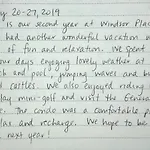 20-27, 2019
is our second year at Windsor Place
had another wonderful vacation w
of fun and relaxation. We spent
our days enjoying lovely weather at
ch and pool, jumping waves and bu
castles. We also enjoyed riding
lay mini-golf and visit the General
The condo was a comfortable p
lax and recharge. We hope to be
next year!